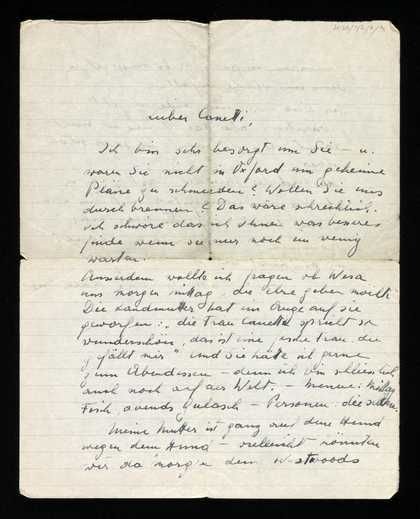 Lieber Canetti,
Ich bin sehr besorgt um Sie – u.
waren Sie nicht in Oxford um geheime
Pläne zu schmieden? Wollen Sie uns
durchbrennen? Das wäre schrecklich.
Ich schwöre dass ich Ihnen was besseres
finde wenn Sie nur noch ein wenig
warten.
Ausserdem wollte ich fragen ob Wesa
uns morgen mittag die Ehre geben möchte
Die Landmutter hat ein Auge auf sie
geworfen: "die Frau Canetti spricht so
wunderschön, das ist eine fesche Frau, die
g'fällt mir" Und Sie hätte ich gerne
zum Abendessen – denn ich bin schliesslich
auch noch auf der Welt. – Menue: Mittag
Fisch, abends Gulasch – Personen: die
Meine Mutter ist ganz ohne Hund
wegen dem Hund – vielleicht könnten
wir da morgen dem Westwoods